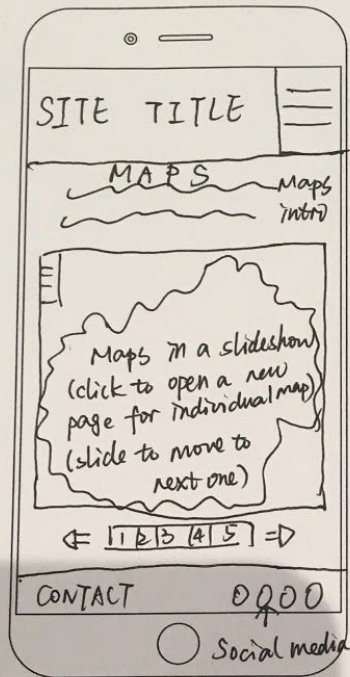 SITE TITLE
MAPS
Maps
intro
Maps in a slideshow
(click to open a new
page for individual map)
(slide to move to
next one)
1 2 3 4 5
CONTACT
Social media